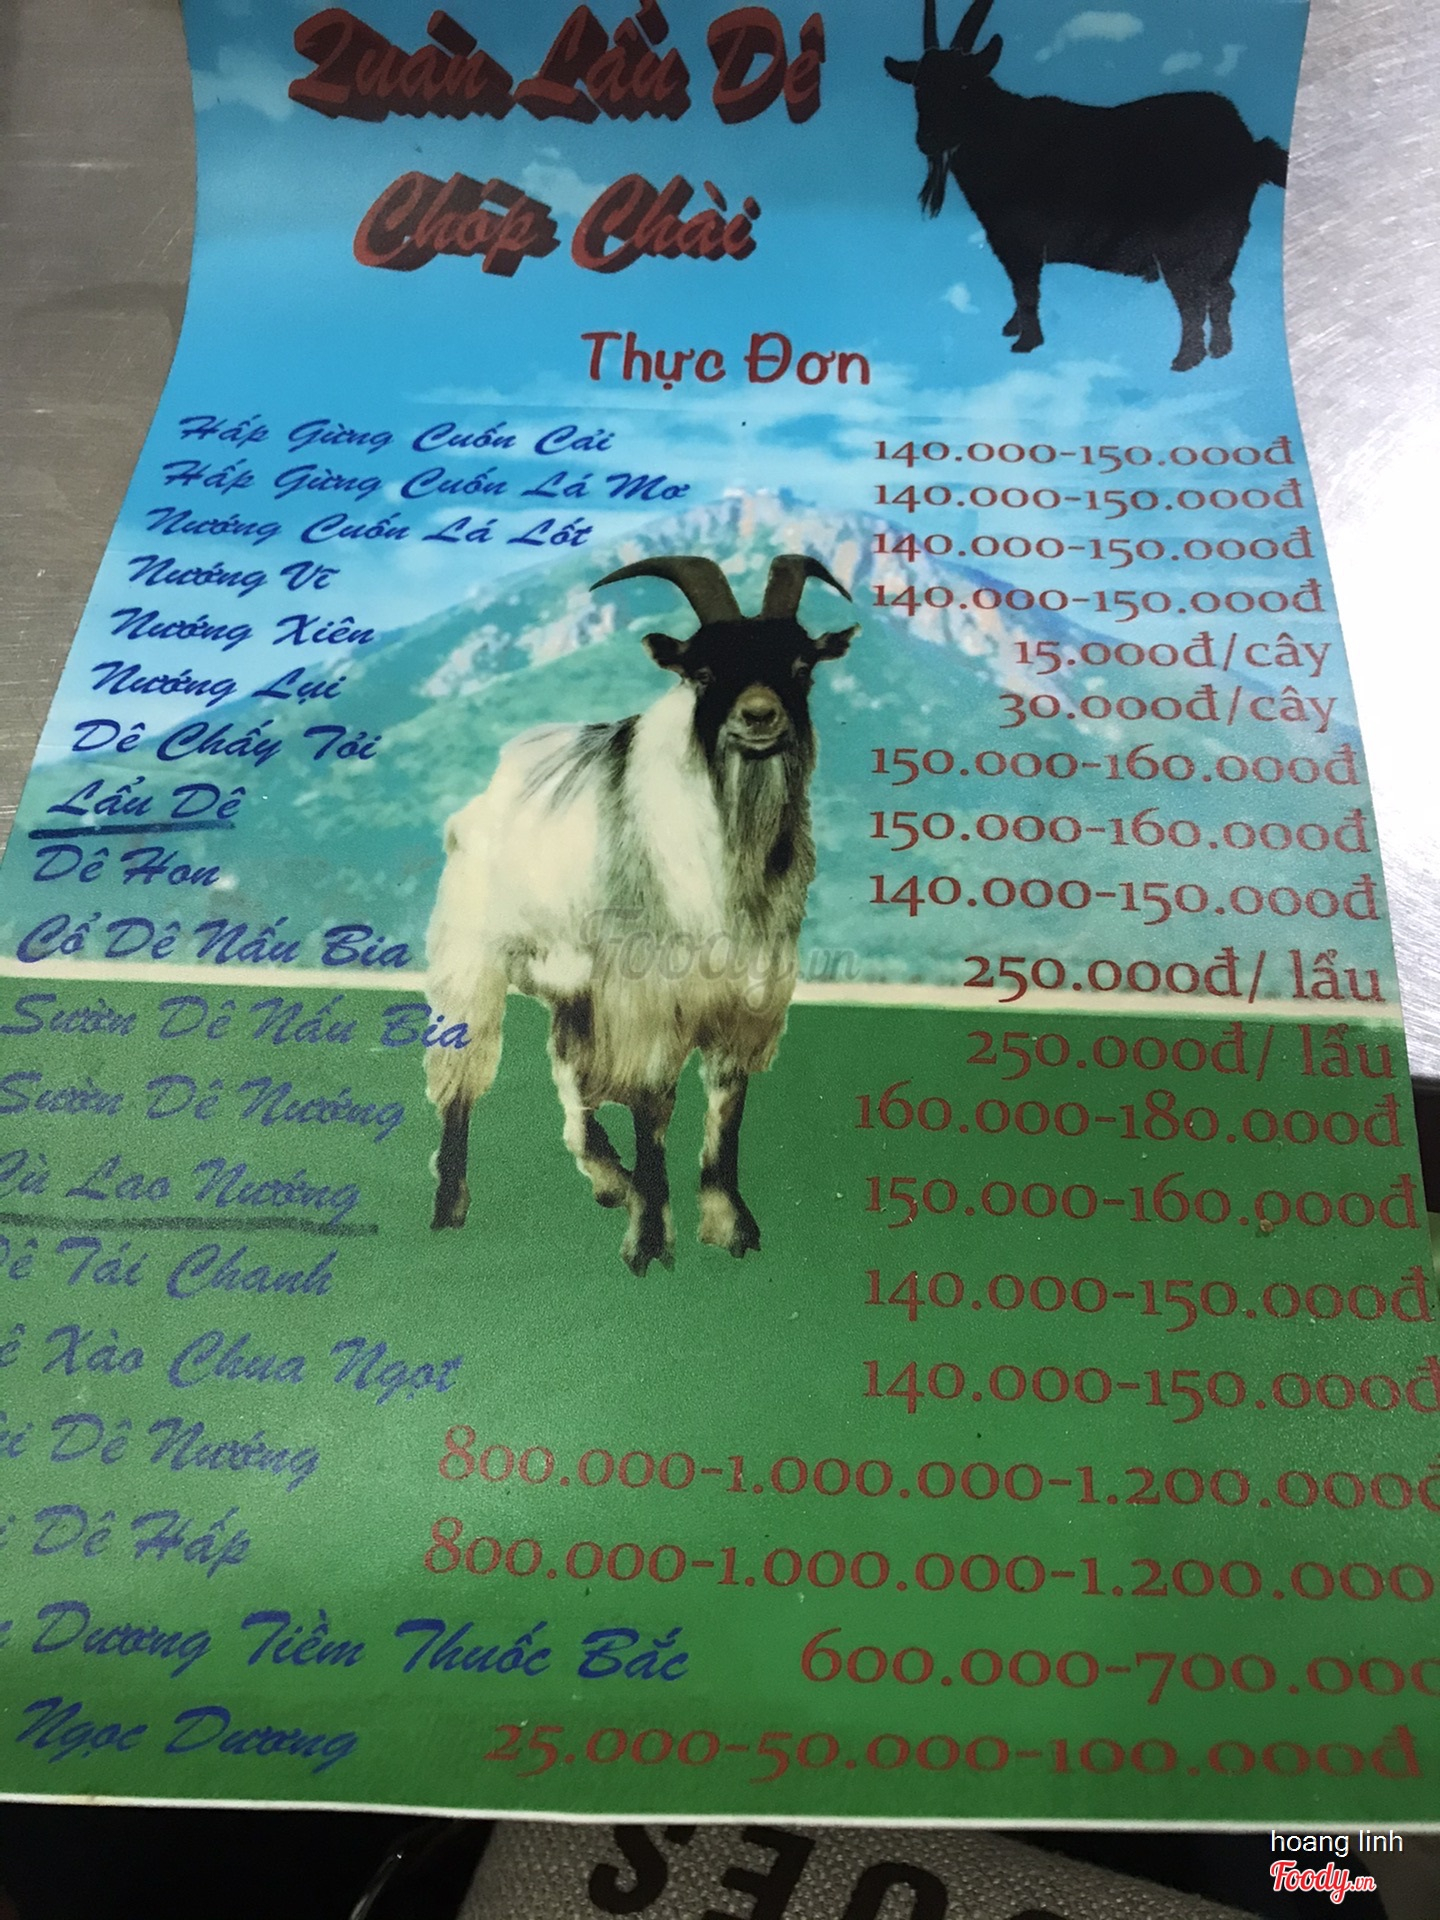 Quán Lẩu Dê
Chóp Chài
Thực Đơn
Hấp Gừng Cuốn Cải 140.000-150.000đ
Hấp Gừng Cuốn Lá Mơ 140.000-150.000đ
Nướng Cuốn Lá Lốt 140.000-150.000đ
Nướng Vĩ 140.000-150.000đ
Nướng Xiên 15.000đ/cây
Nướng Lụi 30.000đ/cây
Dê Chấy Tỏi 150.000-160.000đ
Lẩu Dê 150.000-160.000đ
Dê Hon 140.000-150.000đ
Cổ Dê Nấu Bia 250.000đ/ lẩu
Sườn Dê Nấu Bia 250.000đ/ lẩu
Sườn Dê Nướng 160.000-180.000đ
Cù Lao Nướng 150.000-160.000đ
Dê Tái Chanh 140.000-150.000đ
Dê Xào Chua Ngọt 140.000-150.000đ
Dê Nướng 800.000-1.000.000-1.200.000đ
Dê Hấp 800.000-1.000.000-1.200.000
Dương Tiềm Thuốc Bắc 600.000-700.000
Ngọc Dương 25.000-50.000-100.000đ
Foody.vn
hoang linh
Foody.vn